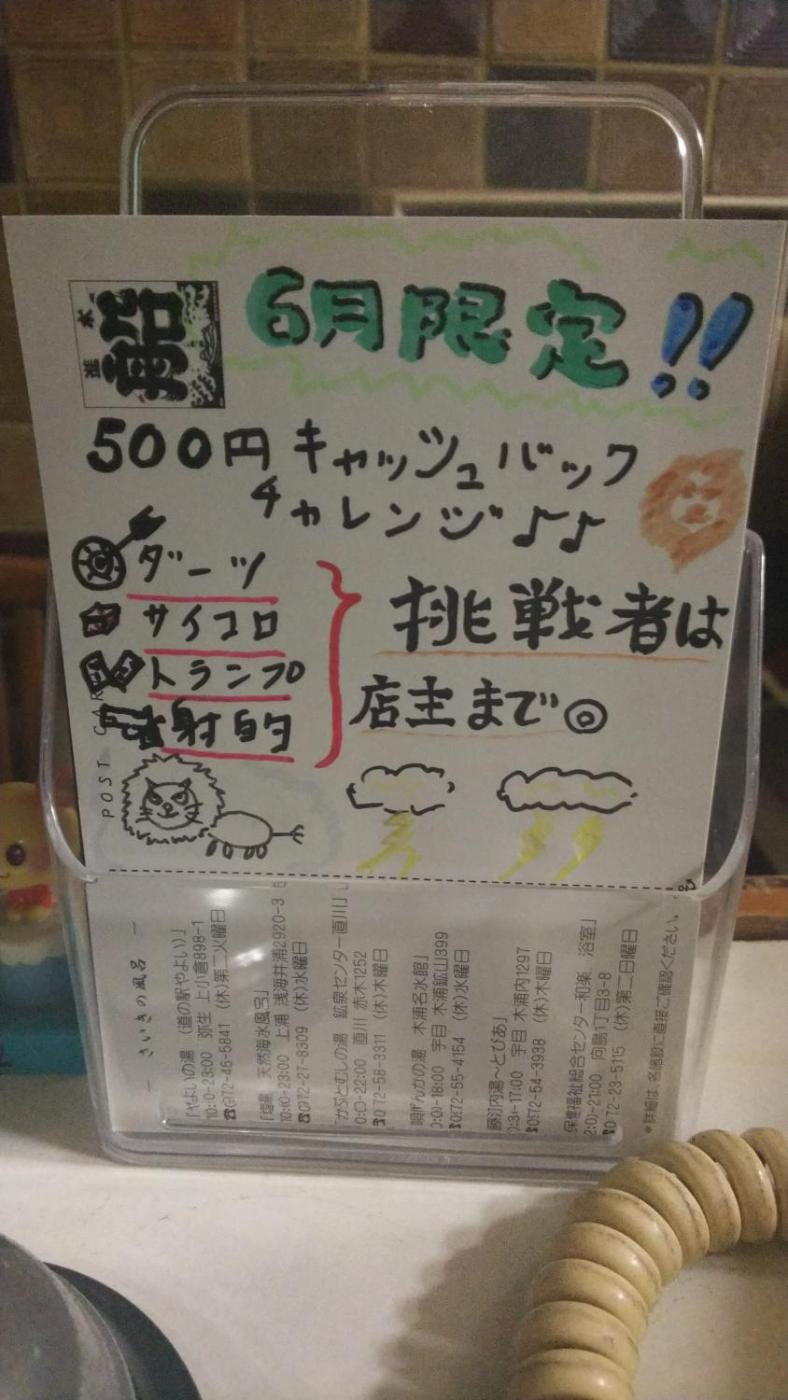 船
6月限定!!
500円キャッシュバック
チャレンジ♪♪
ダーツ
サイコロ
トランプ
射的
挑戦者は
店主まで◎
POST CAR
― さいきの風呂 ―
「やよいの湯 (道の駅やよい)」
10:0-23:00 弥生 上小倉898-1
☎0972-46-5841 (休)第二火曜日
天然海水風呂」
10:0-23:00 上浦 浅海井浦2920-3
☎0972-27-8309 (休)水曜日
鉱泉センター直川」
0:0-22:00 直川 赤木1252
0972-58-3311 (休)木曜日
木浦名水館」
0:0-18:00 宇目 木浦鉱山399
0972-55-4154 (休)水曜日
藤河内湯〜とぴあ」
0:3-17:00 宇目 木浦内1297
0972-54-3938 (休)木曜日
保健福祉総合センター和楽 浴室」
2:0-21:00 向島1丁目3-8
0972-23-5115 (休)第二日曜日
*詳細は、各施設に直接ご確認ください。